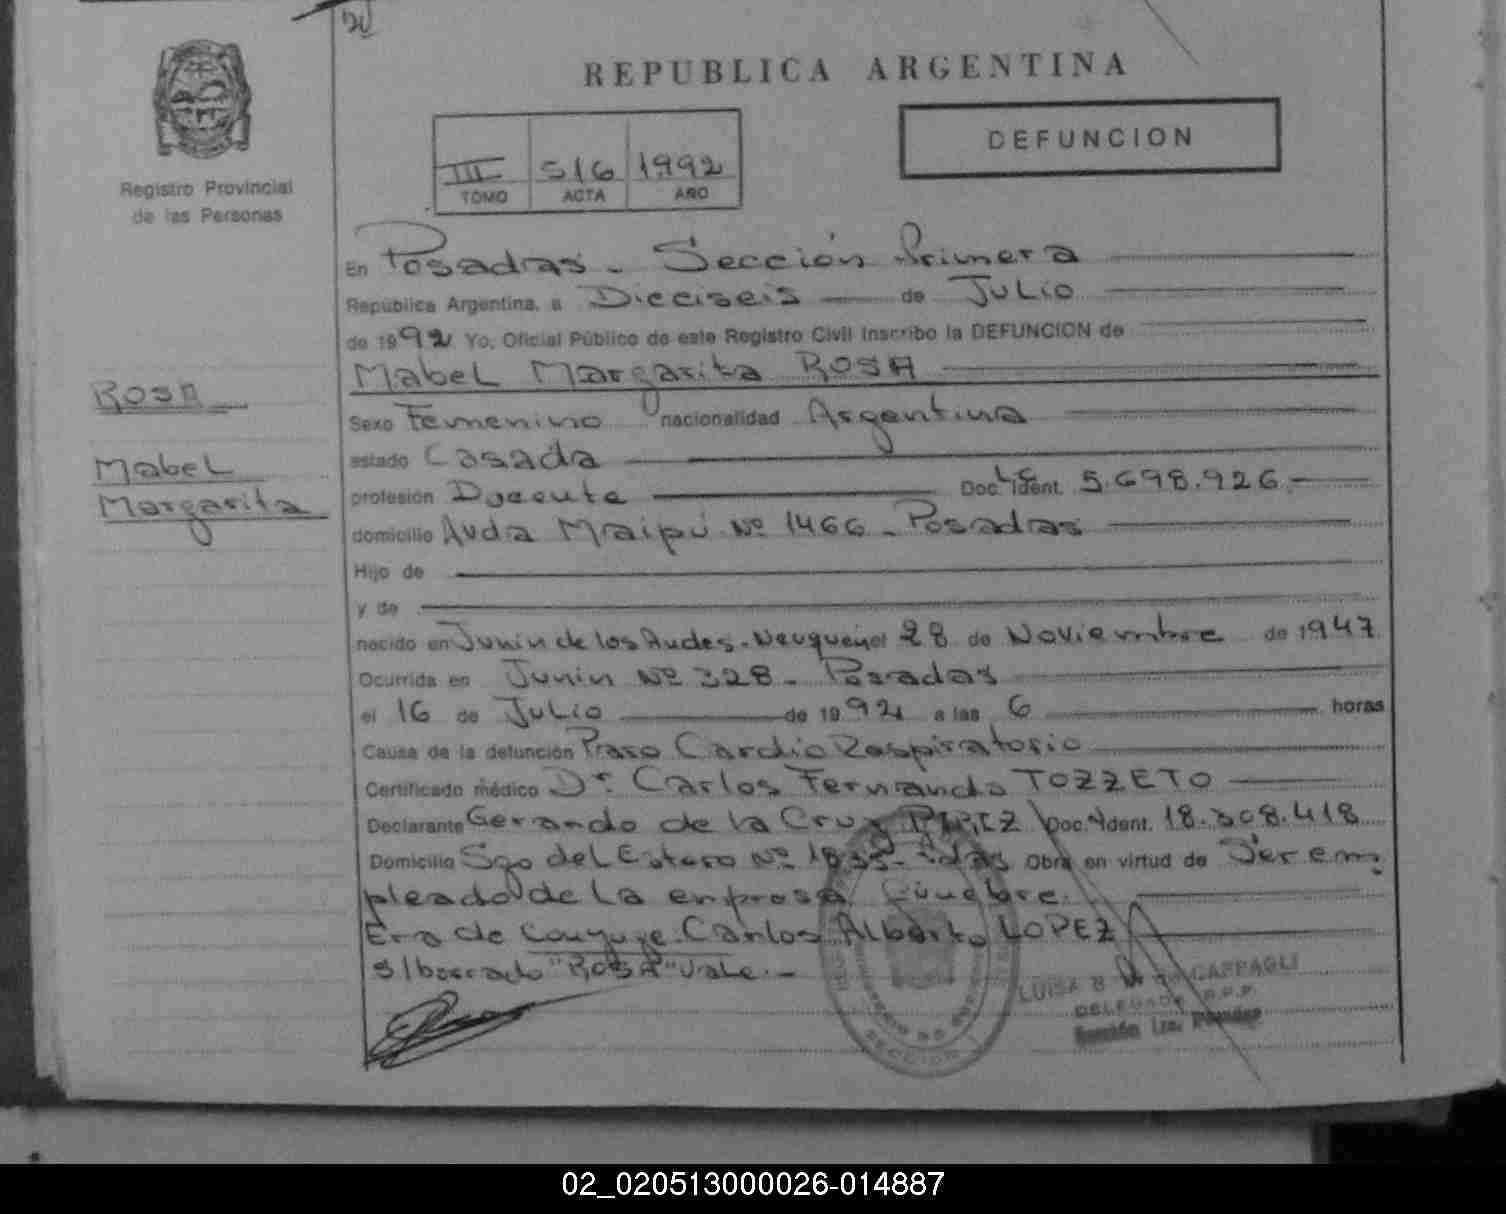 REPUBLICA ARGENTINA
DEFUNCION
III 516 1992
TOMO ACTA AÑO
Registro Provincial
de las Personas
En Posadas - Sección Primera
República Argentina, a Dieciseis de Julio
de 1992 Yo, Oficial Público de este Registro Civil Inscribo la DEFUNCION de
Mabel Margarita ROSA
ROSA
Mabel
Margarita
Sexo Femenino nacionalidad Argentina
estado Casada
profesión Docente Doc. LC Ident. 5.698.926
domicilio Avda Maipú Nº 1466 - Posadas
Hijo de
y de
nacido en Junin de los Andes - Neuquen el 28 de Noviembre de 1947
Ocurrida en Junin Nº 328 - Posadas
el 16 de Julio de 1992 a las 6 horas
Causa de la defunción Paro Cardio Respiratorio
Certificado médico Dr. Carlos Fernando TOZZETO
Declarante Gerardo de la Cruz Doc. Ident. 18.308.418
Domicilio Sgo del Estero Nº Obra en virtud de Ser em
pleado de la empresa Fúnebre.
Era de Conyuge Carlos Alberto LOPEZ
s/borrado "ROSA" Vale. -
LUISA B. de CAFFAGLI
DELEGADA R.P.P.
SECCION
02_020513000026-014887